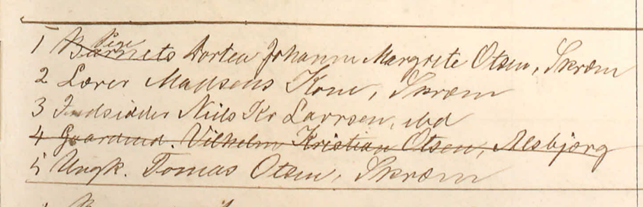 1 Pige Dortea Johanne Margrete Otsen, Skræm
2 Lærer Madsens Kone, Skræm
3 Indsidder Niels Kr Larsen, ibd
4 Gaardmd. Vilhelm Kristian Otsen, Alsbjerg
5 Ungk. Tomas Otsen, Skræm